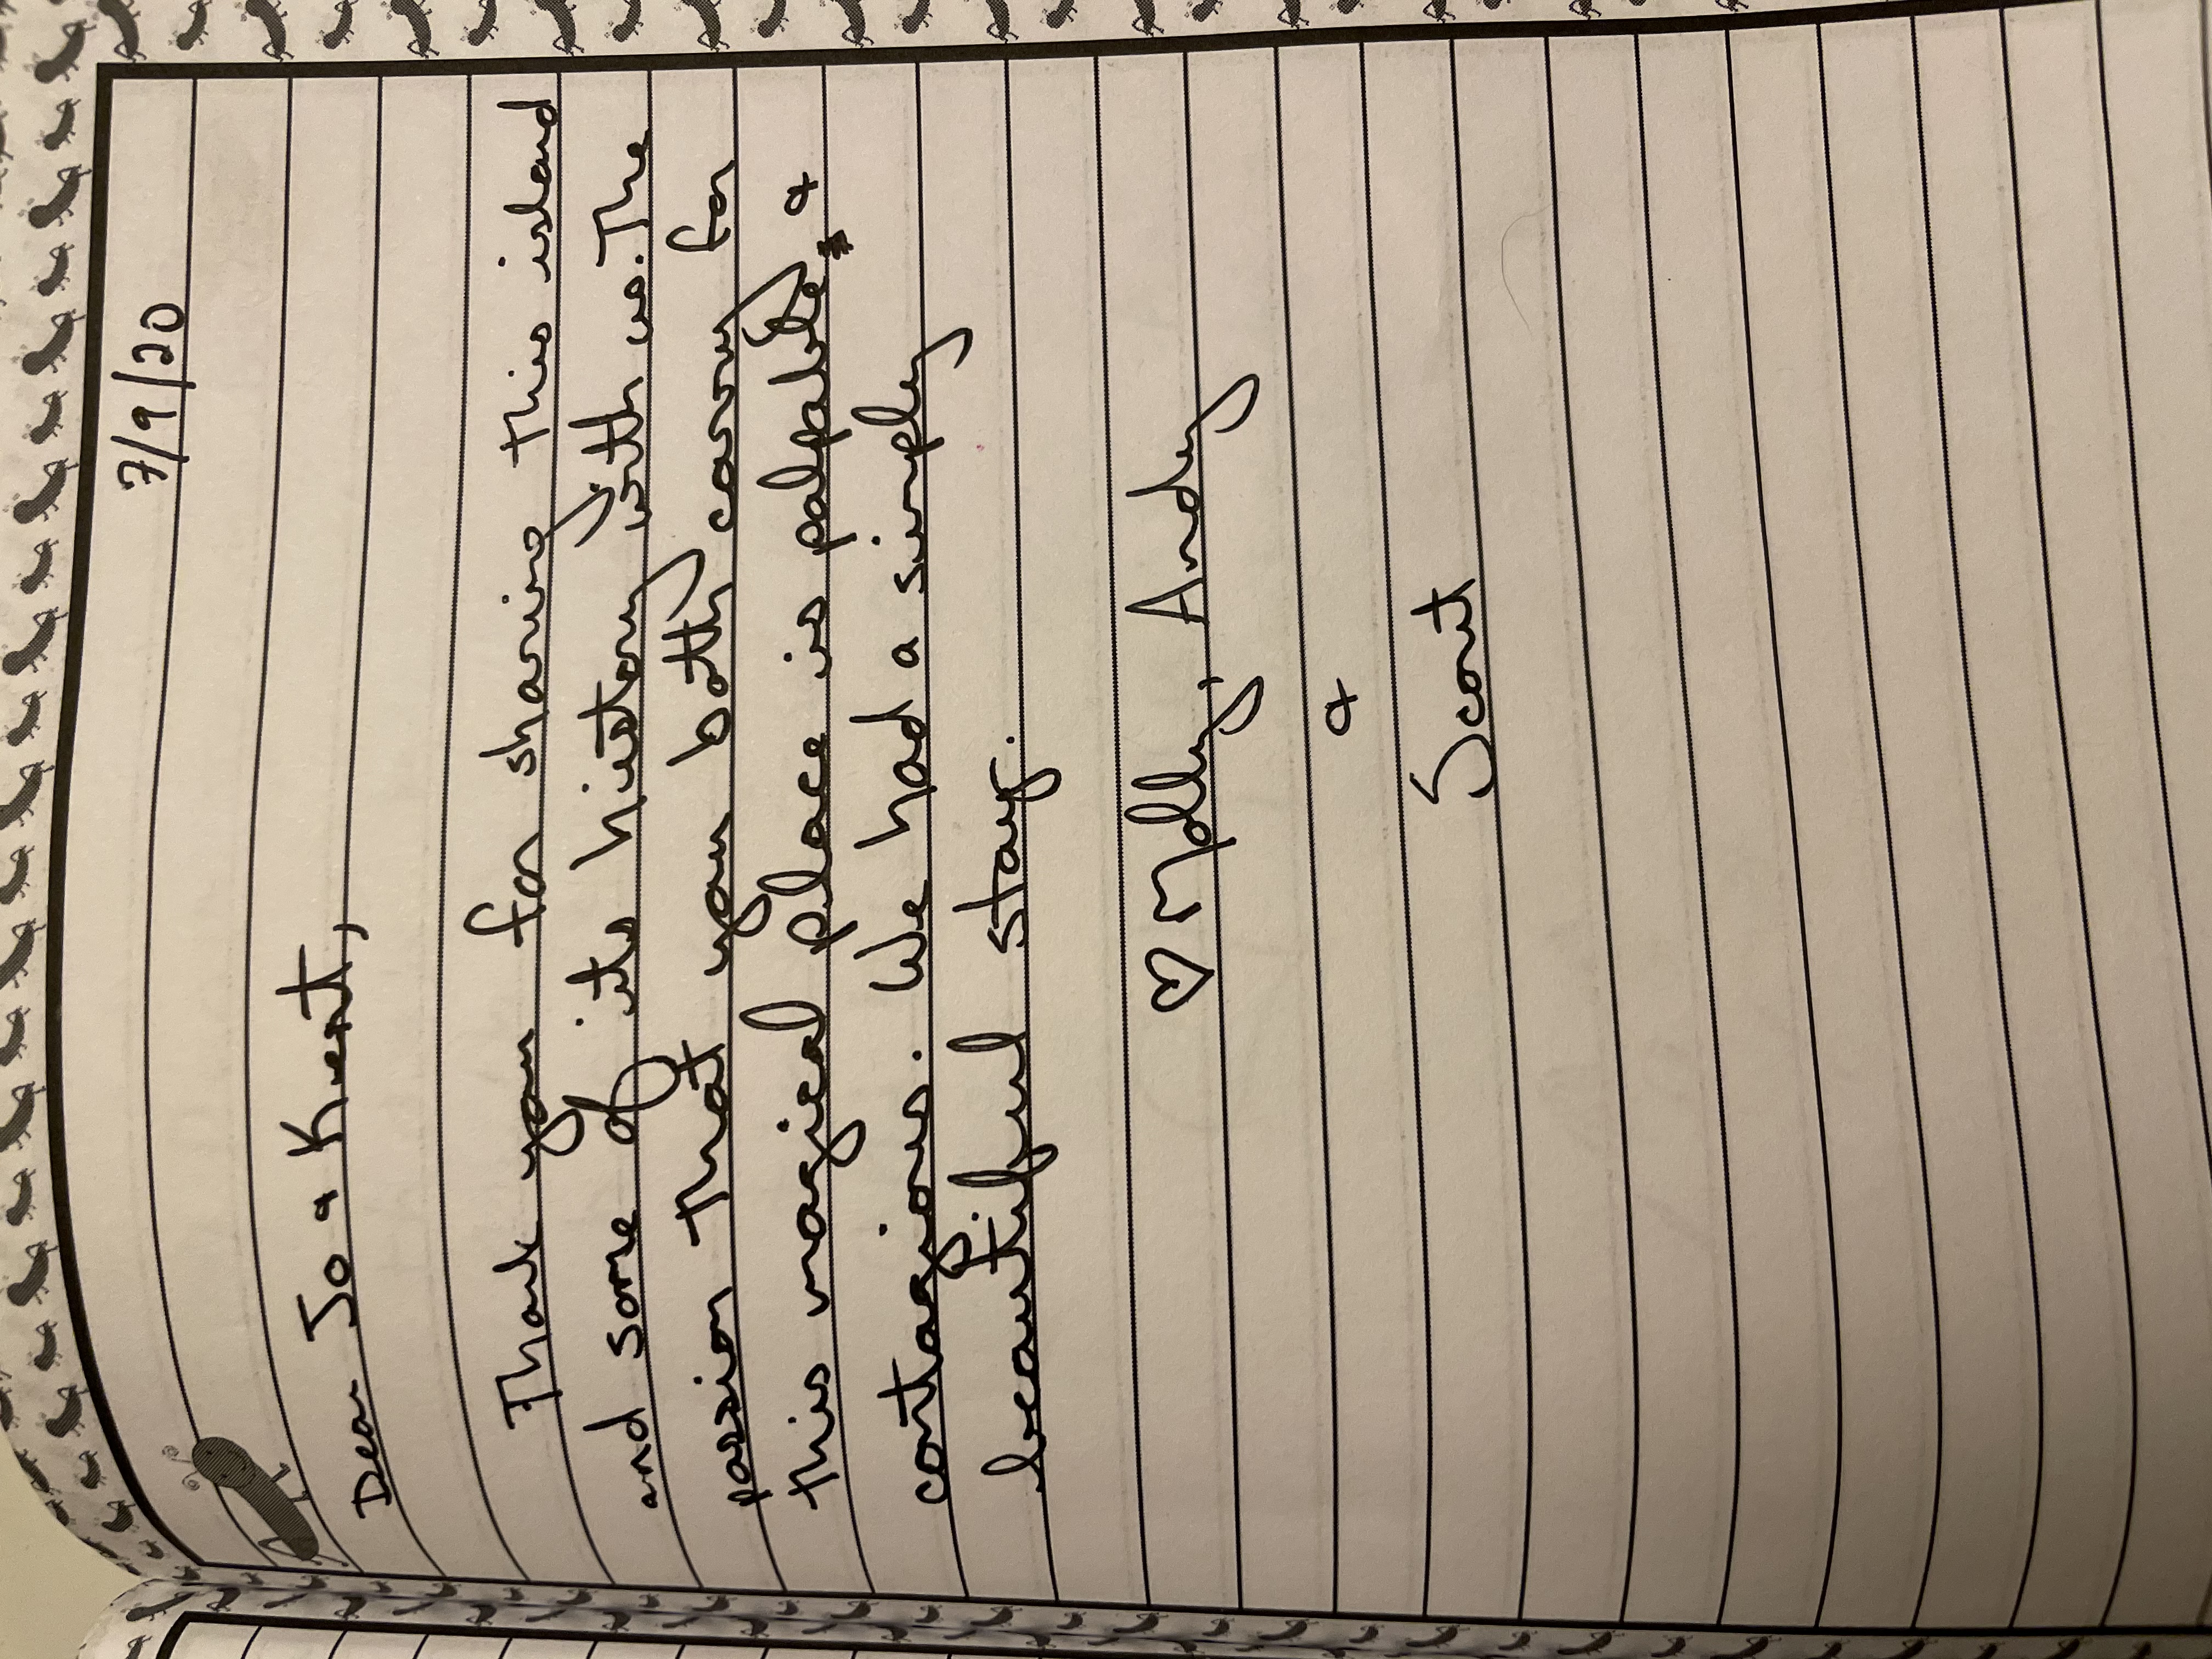 7/9/20
Dear Jo & Kent,
Thank you for sharing this island
and some of its history with us. The
passion that you both carry for
this magical place is palpable &
contagious. We had a simply
beautiful stay.
♡ Molly, Andy
&
Scout